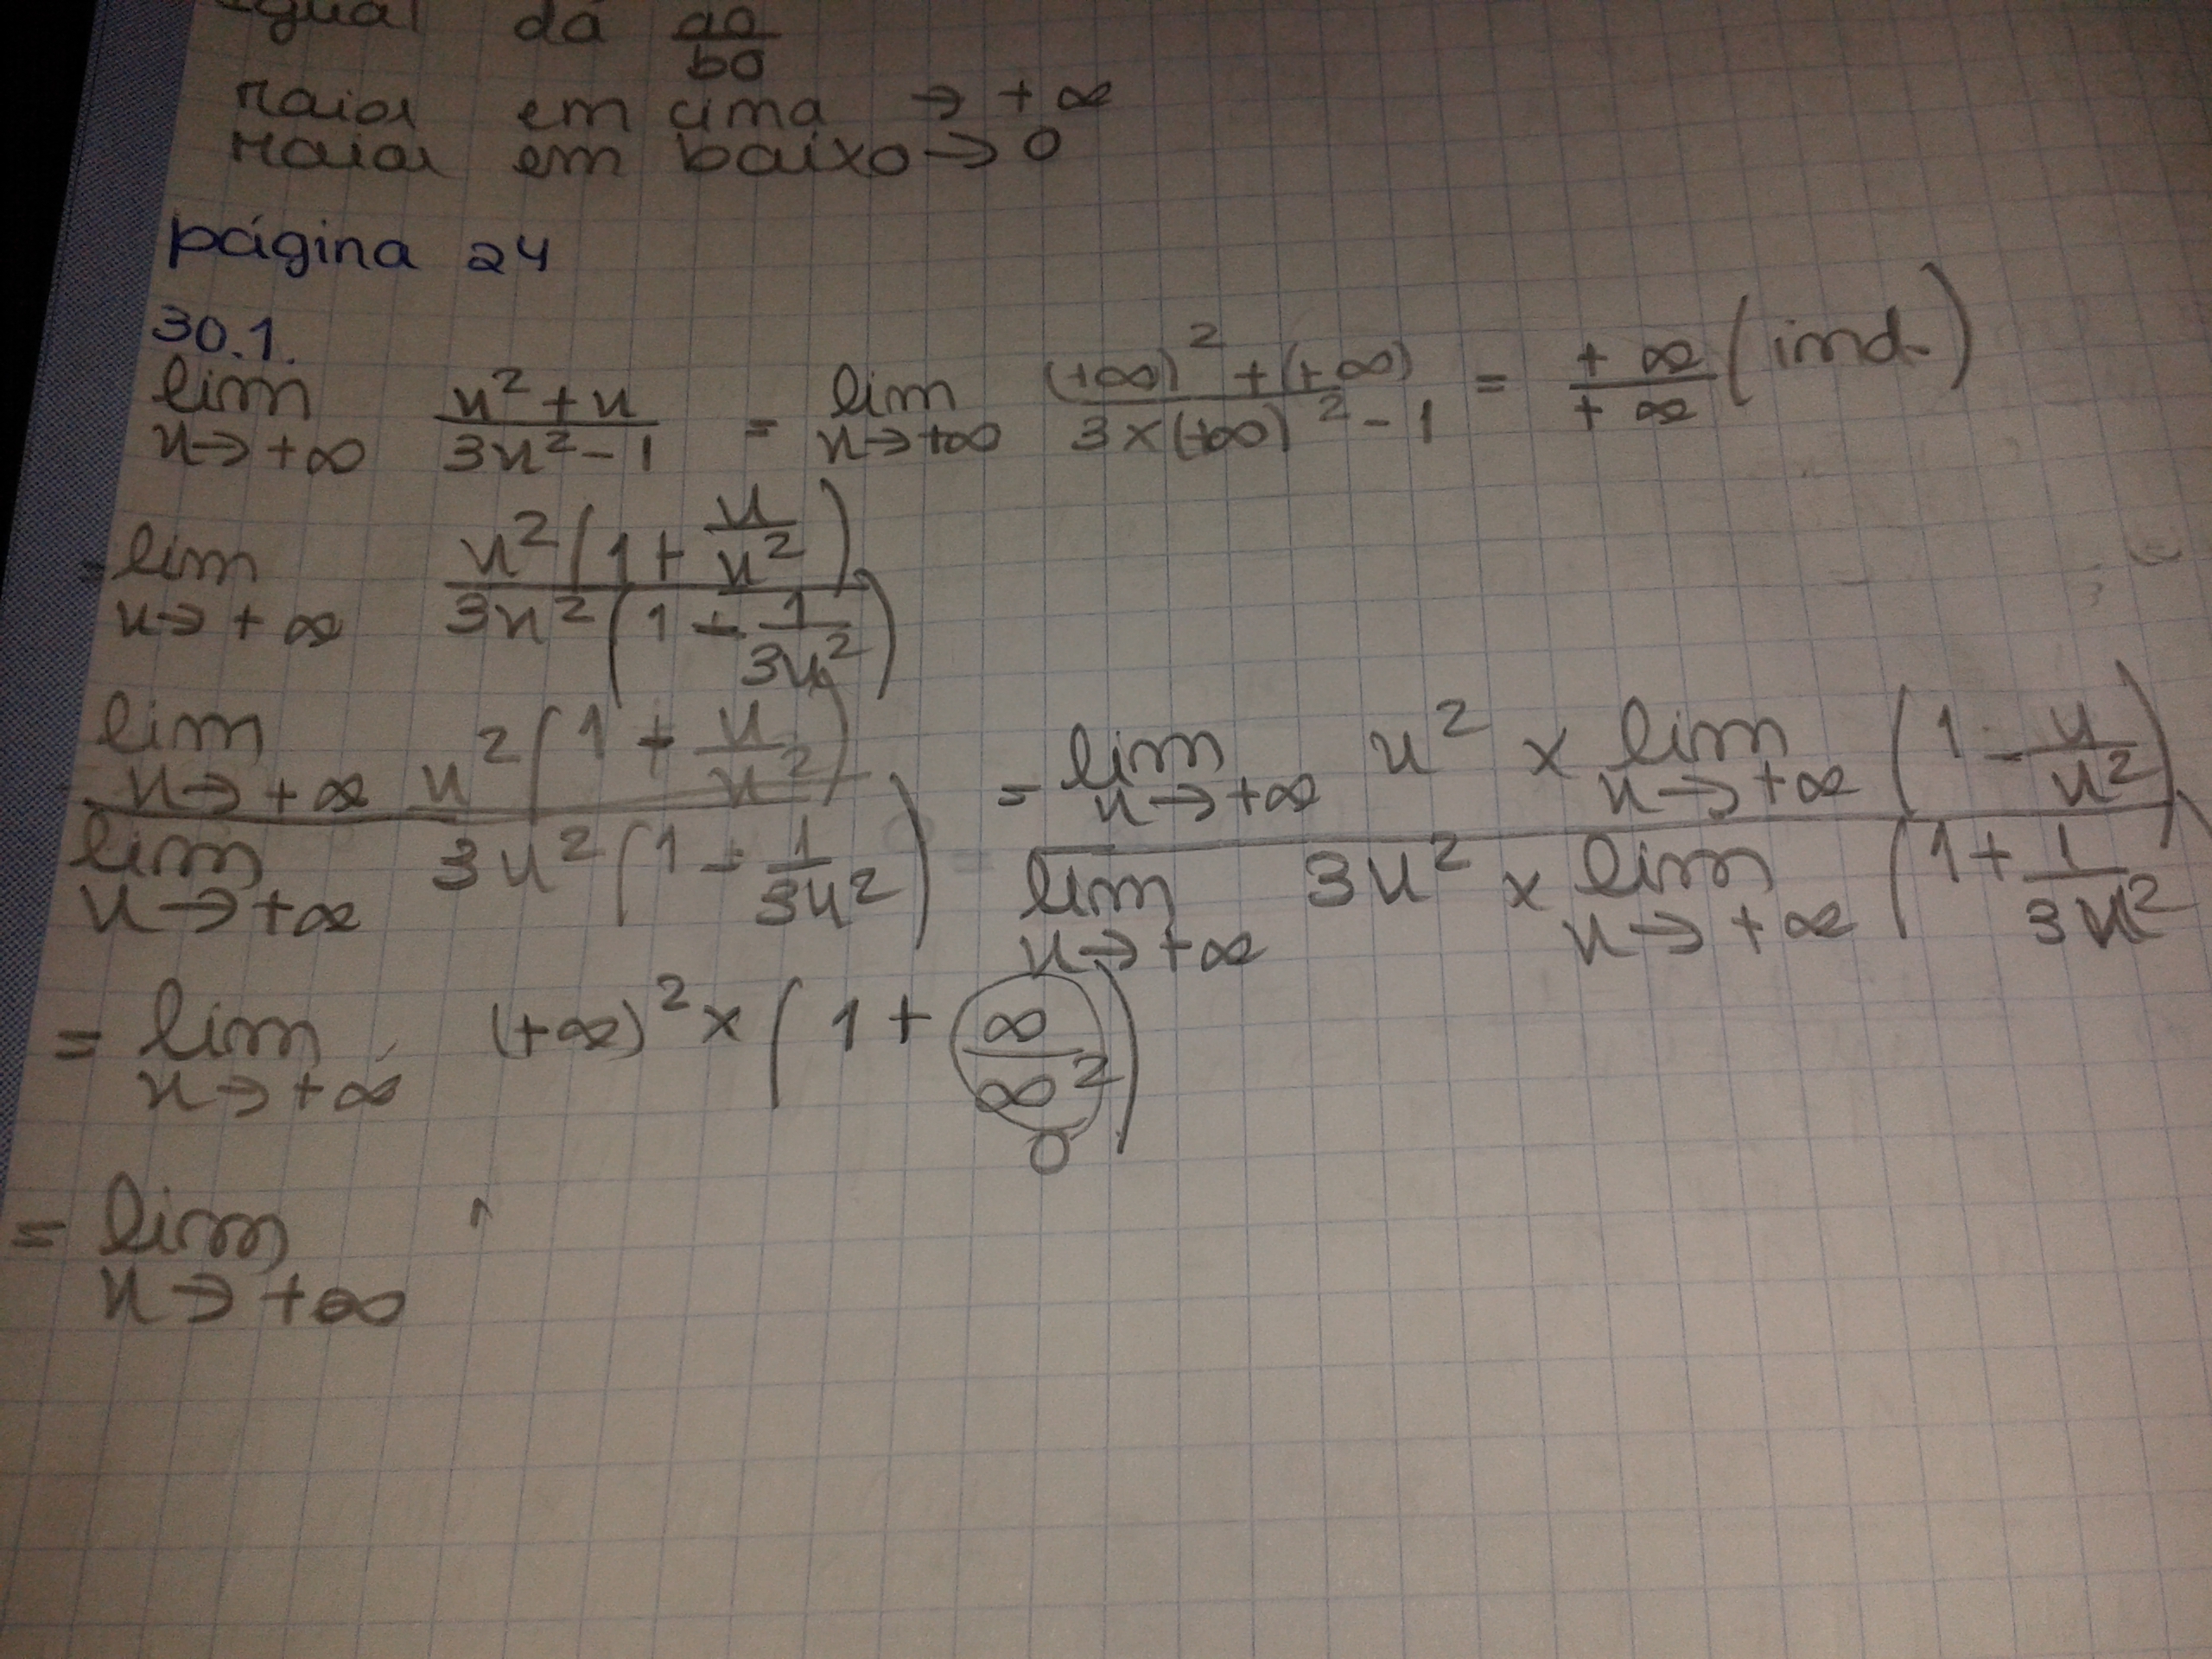 igual dá ao/bo
Maior em cima → +∞
Maior em baixo → 0
página 24
30.1.
lim x→+∞ (x²+x)/(3x²-1) = lim x→+∞ ((+∞)²+(+∞))/(3×(+∞)²-1) = +∞/+∞ (ind.)
= lim x→+∞ x²(1+x/x²)/3x²(1-1/3x²)
lim x→+∞ x²(1+x/x²) / lim x→+∞ 3x²(1-1/3x²) = lim x→+∞ x² × lim x→+∞ (1-x/x²) / lim x→+∞ 3x² × lim x→+∞ (1+1/3x²
= lim x→+∞ (+∞)² × (1+∞/∞²)
0
= lim x→+∞